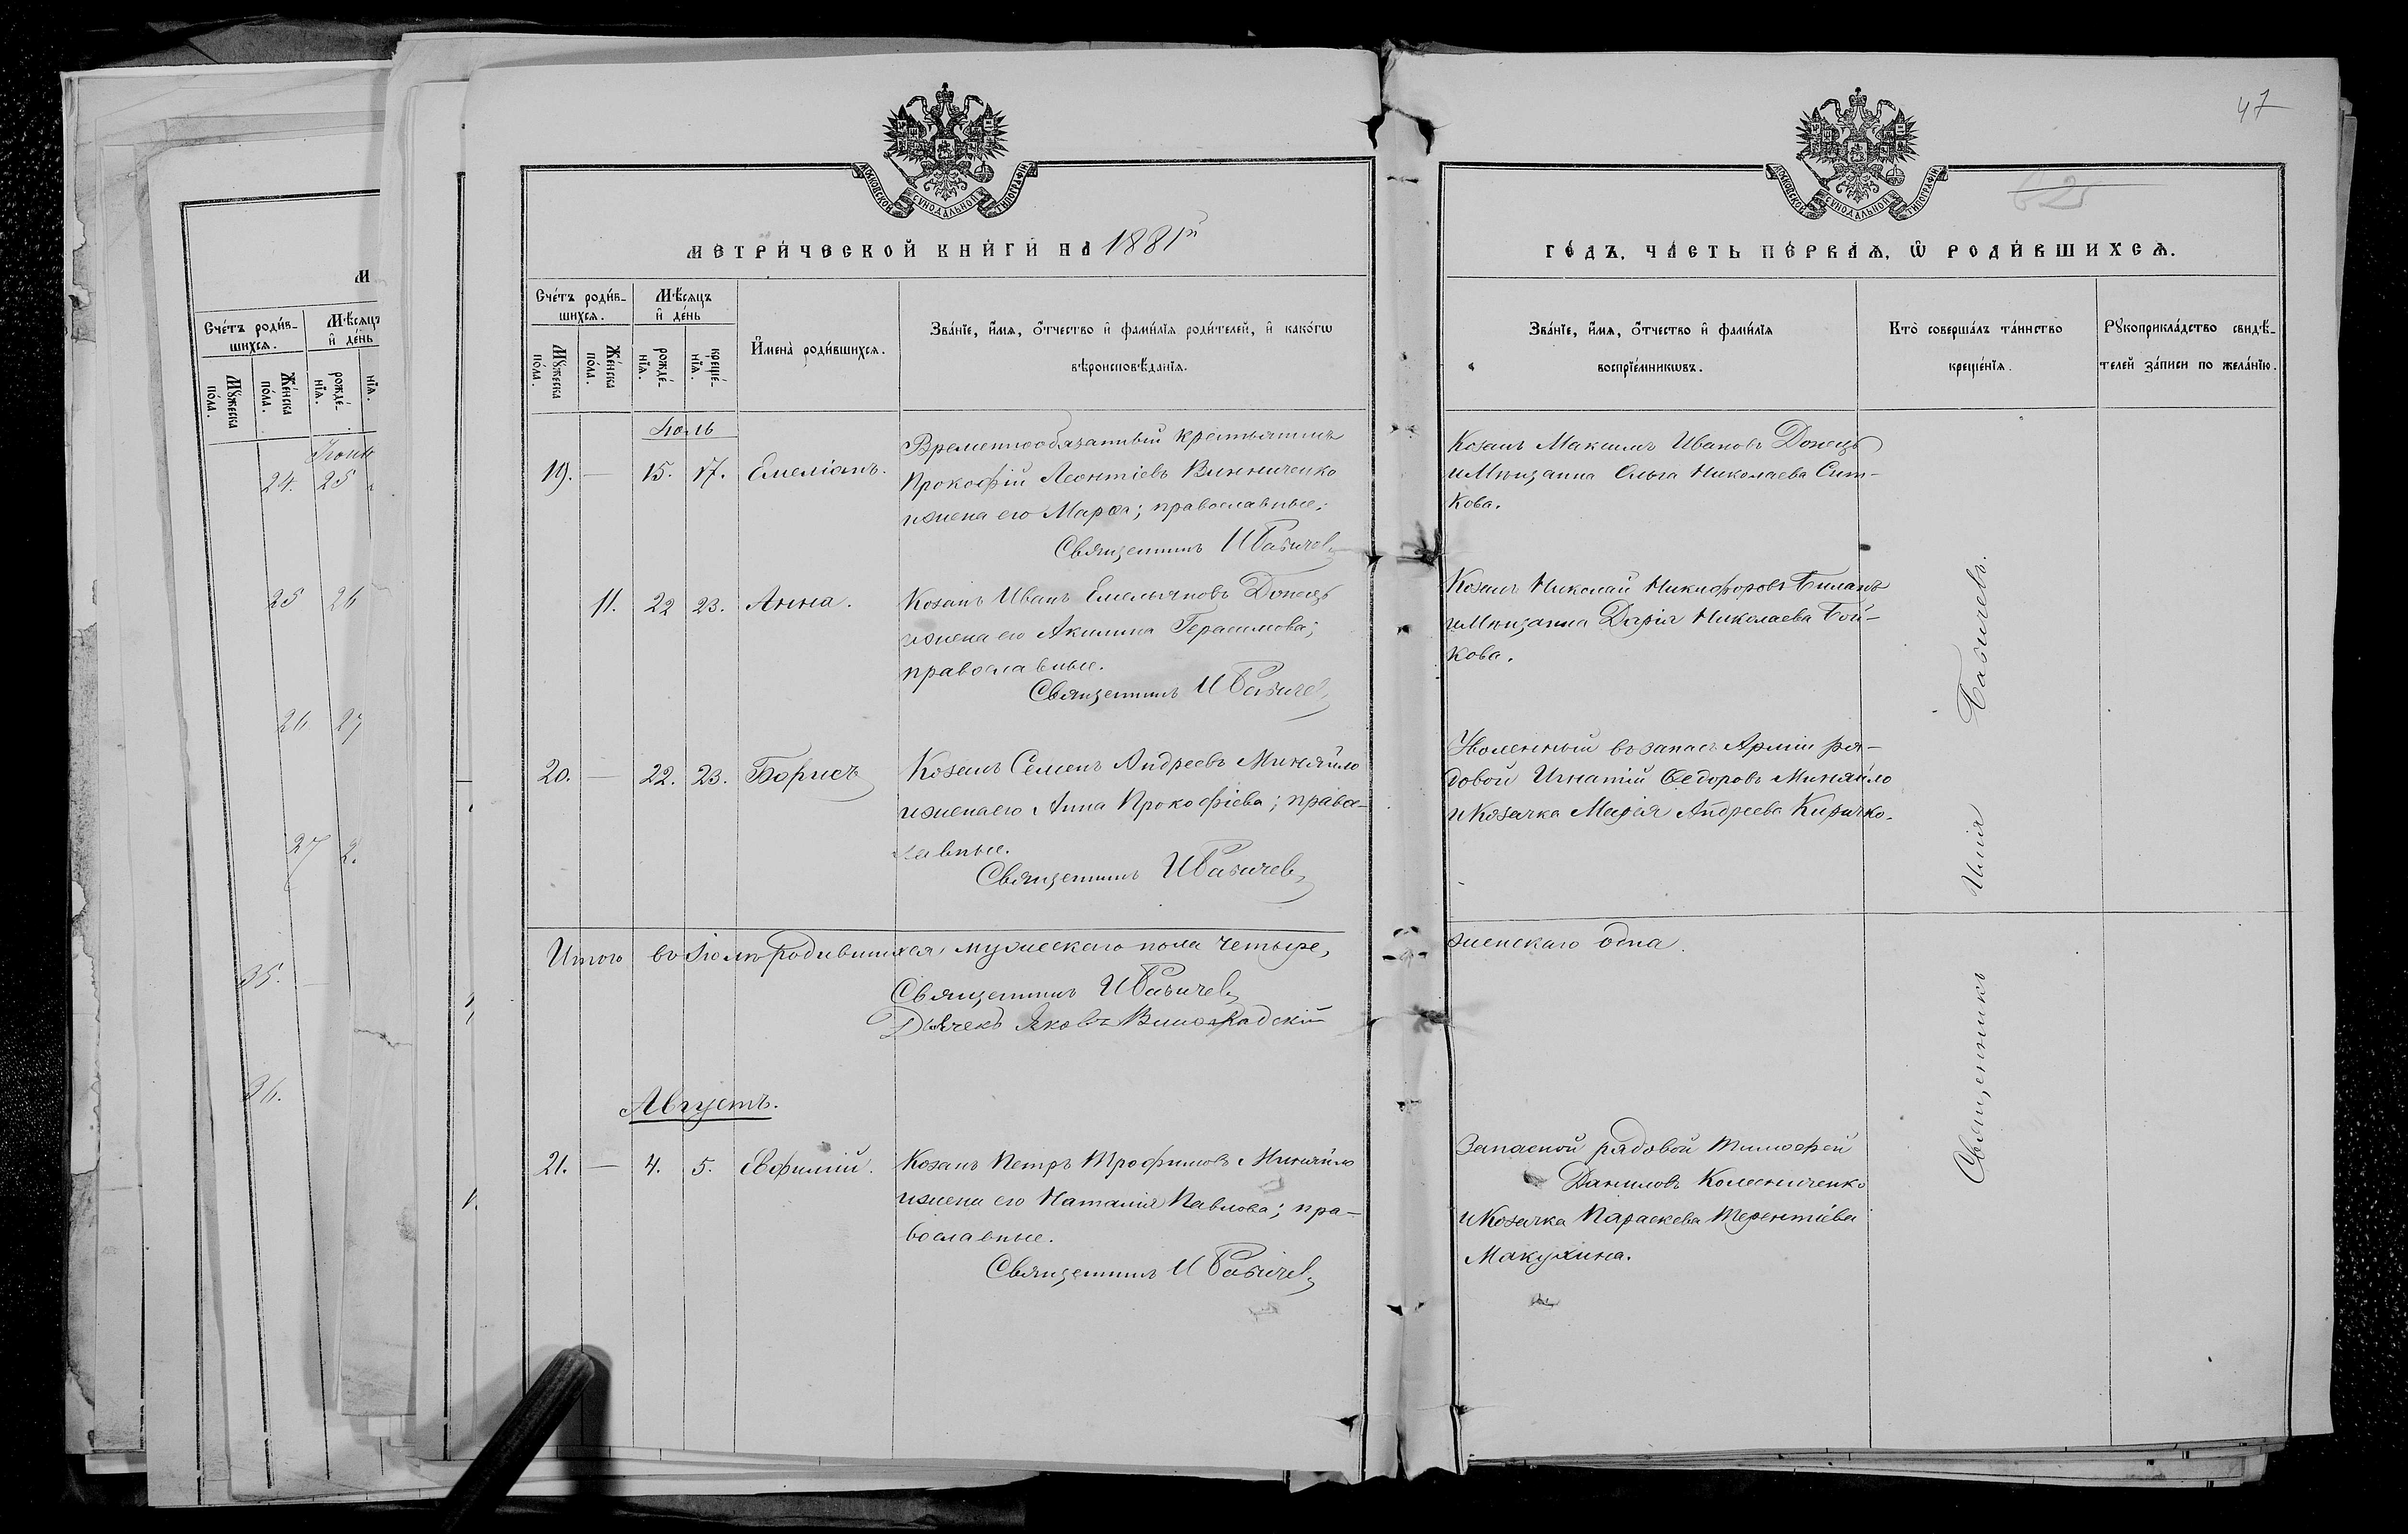 47
МОСКОВСКОЙ СУНОДАЛЬНОЙ ТИПОГРАФІИ
МОСКОВСКОЙ СУНОДАЛЬНОЙ ТИПОГРАФІИ
МЕТРИ́ЧЕСКОЙ КНИ́ГИ НА 1881й
ГО́ДЪ, ЧА́СТЬ ПЕ́РВАѦ, Ѽ РОДИ́ВШИХСѦ.
Сче́тъ роди́в-
шихсѧ.
Мꙋ́жеска по́ла.
Же́нска по́ла.
Мѣ́сяцъ
и҆ де́нь
рожде́-
нїѧ.
креще́-
нїѧ.
И҆мена̀ роди́вшихсѧ.
Зва́нїе, и҆́мѧ, ѻ҆́тчество и҆ фами́лїѧ роди́телей, и҆ како́гѡ
вѣроисповѣ́данїѧ.
Зва́нїе, и҆́мѧ, ѻ҆́тчество и҆ фами́лїѧ
воспрїе́мникѡвъ.
Кто̀ соверша́лъ та́инство
креще́нїѧ.
Рꙋкоприкла́дство свидѣ́-
телей за́писи по жела́нїю.
Іюль
19. — 15. 17. Емеліанъ.
Временнообязанный крестьянинъ
Прокофій Леонтіевъ Винниченко
и жена его Марѳа; православные.
Священникъ И Бабичевъ
Козакъ Максимъ Ивановъ Донецъ
и Мѣщанка Ольга Николаева Сит-
кова.
11. 22 23. Анна.
Козакъ Иванъ Емельяновъ Донецъ
и жена его Акилина Герасимова;
православные.
Священникъ И Бабичевъ
Козакъ Николай Никифоровъ Биланъ
и Мѣщанка Дарія Николаева Бой-
кова.
20. — 22. 23. Борисъ
Козакъ Семенъ Андреевъ Миняйло
и жена его Анна Прокофіева; право-
славные.
Священникъ И Бабичевъ
Уволенный въ запасъ Арміи ря-
довой Игнатій Ѳедоровъ Миняйло
и Козачка Марія Андреева Киричко.
Итого въ Іюлѣ родившихся, мужескаго пола четыре,
женскаго одна.
Священникъ И Бабичевъ
Дьячекъ Яковъ Виноградскій
Августъ.
21. — 4. 5. Евфимій.
Козакъ Петръ Трофимовъ Миняйло
и жена его Наталія Павлова; пра-
вославные.
Священникъ И Бабичевъ
Запасной рядовой Тимофей
Даниловъ Колесниченко
и Козачка Параскева Терентіева
Макухина.
Священникъ Илія Бабичевъ.
М
Сче́тъ роди́в-
шихсѧ.
Мꙋ́жеска по́ла.
Же́нска по́ла.
Мѣ́сяцъ
и҆ де́нь
рожде́-
нїѧ.
нїѧ.
24. 25
25 26
26 27
27 2.
35.
36.